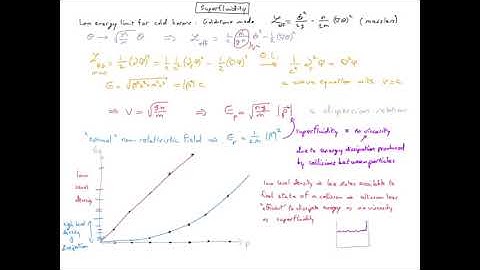 Superfluidity
Low energy limit for cold bosons: Goldstone mode ℒeff = θ̇²/2g - n/2m (∇θ)² (massless)
θ → √(m/n) θ ⇒ ℒeff = 1/2 (m/gn) θ̇² - 1/2 (∇θ)²
1/v²
= wave equation with v=c
⇒ v = √(gn/m) ⇒ Ep = √(ng/m) |p⃗|
= dispersion relation
"normal" non-relativistic field ⇒ Ep = 1/2m |p⃗|²
superfluidity = no viscosity
due to energy dissipation produced
by collisions between particles
low
level
density
high level
density
dissipation
p
low level density ⇒ less states available to
final state of a collision ⇒ collision less
"efficient" to dissipate energy ⇒ no viscosity
⇒ superfluidity